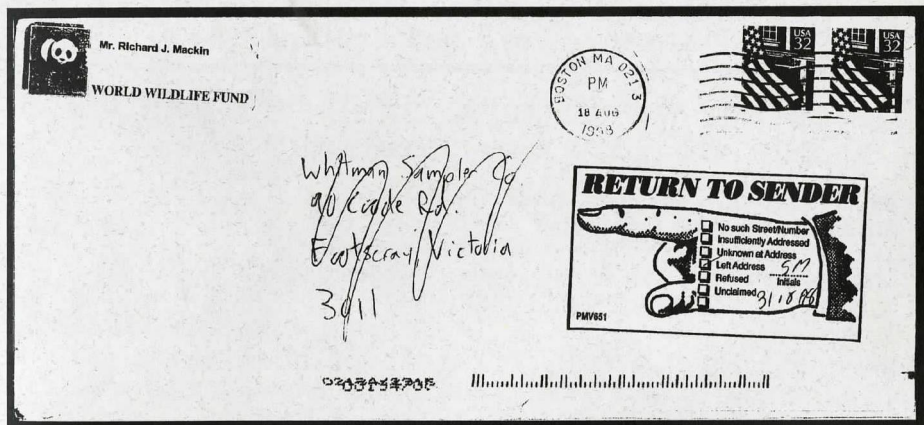 Mr. Richard J. Mackin
WORLD WILDLIFE FUND
BOSTON MA 021 3
PM
18 AUG
1998
USA
32
USA
32
Whitman Sampler Co
90 Rd.
Footscray, Victoria
3011
RETURN TO SENDER
No such Street/Number
Insufficiently Addressed
Unknown at Address
Left Address
Refused
Unclaimed
SM
Initials
PMV651